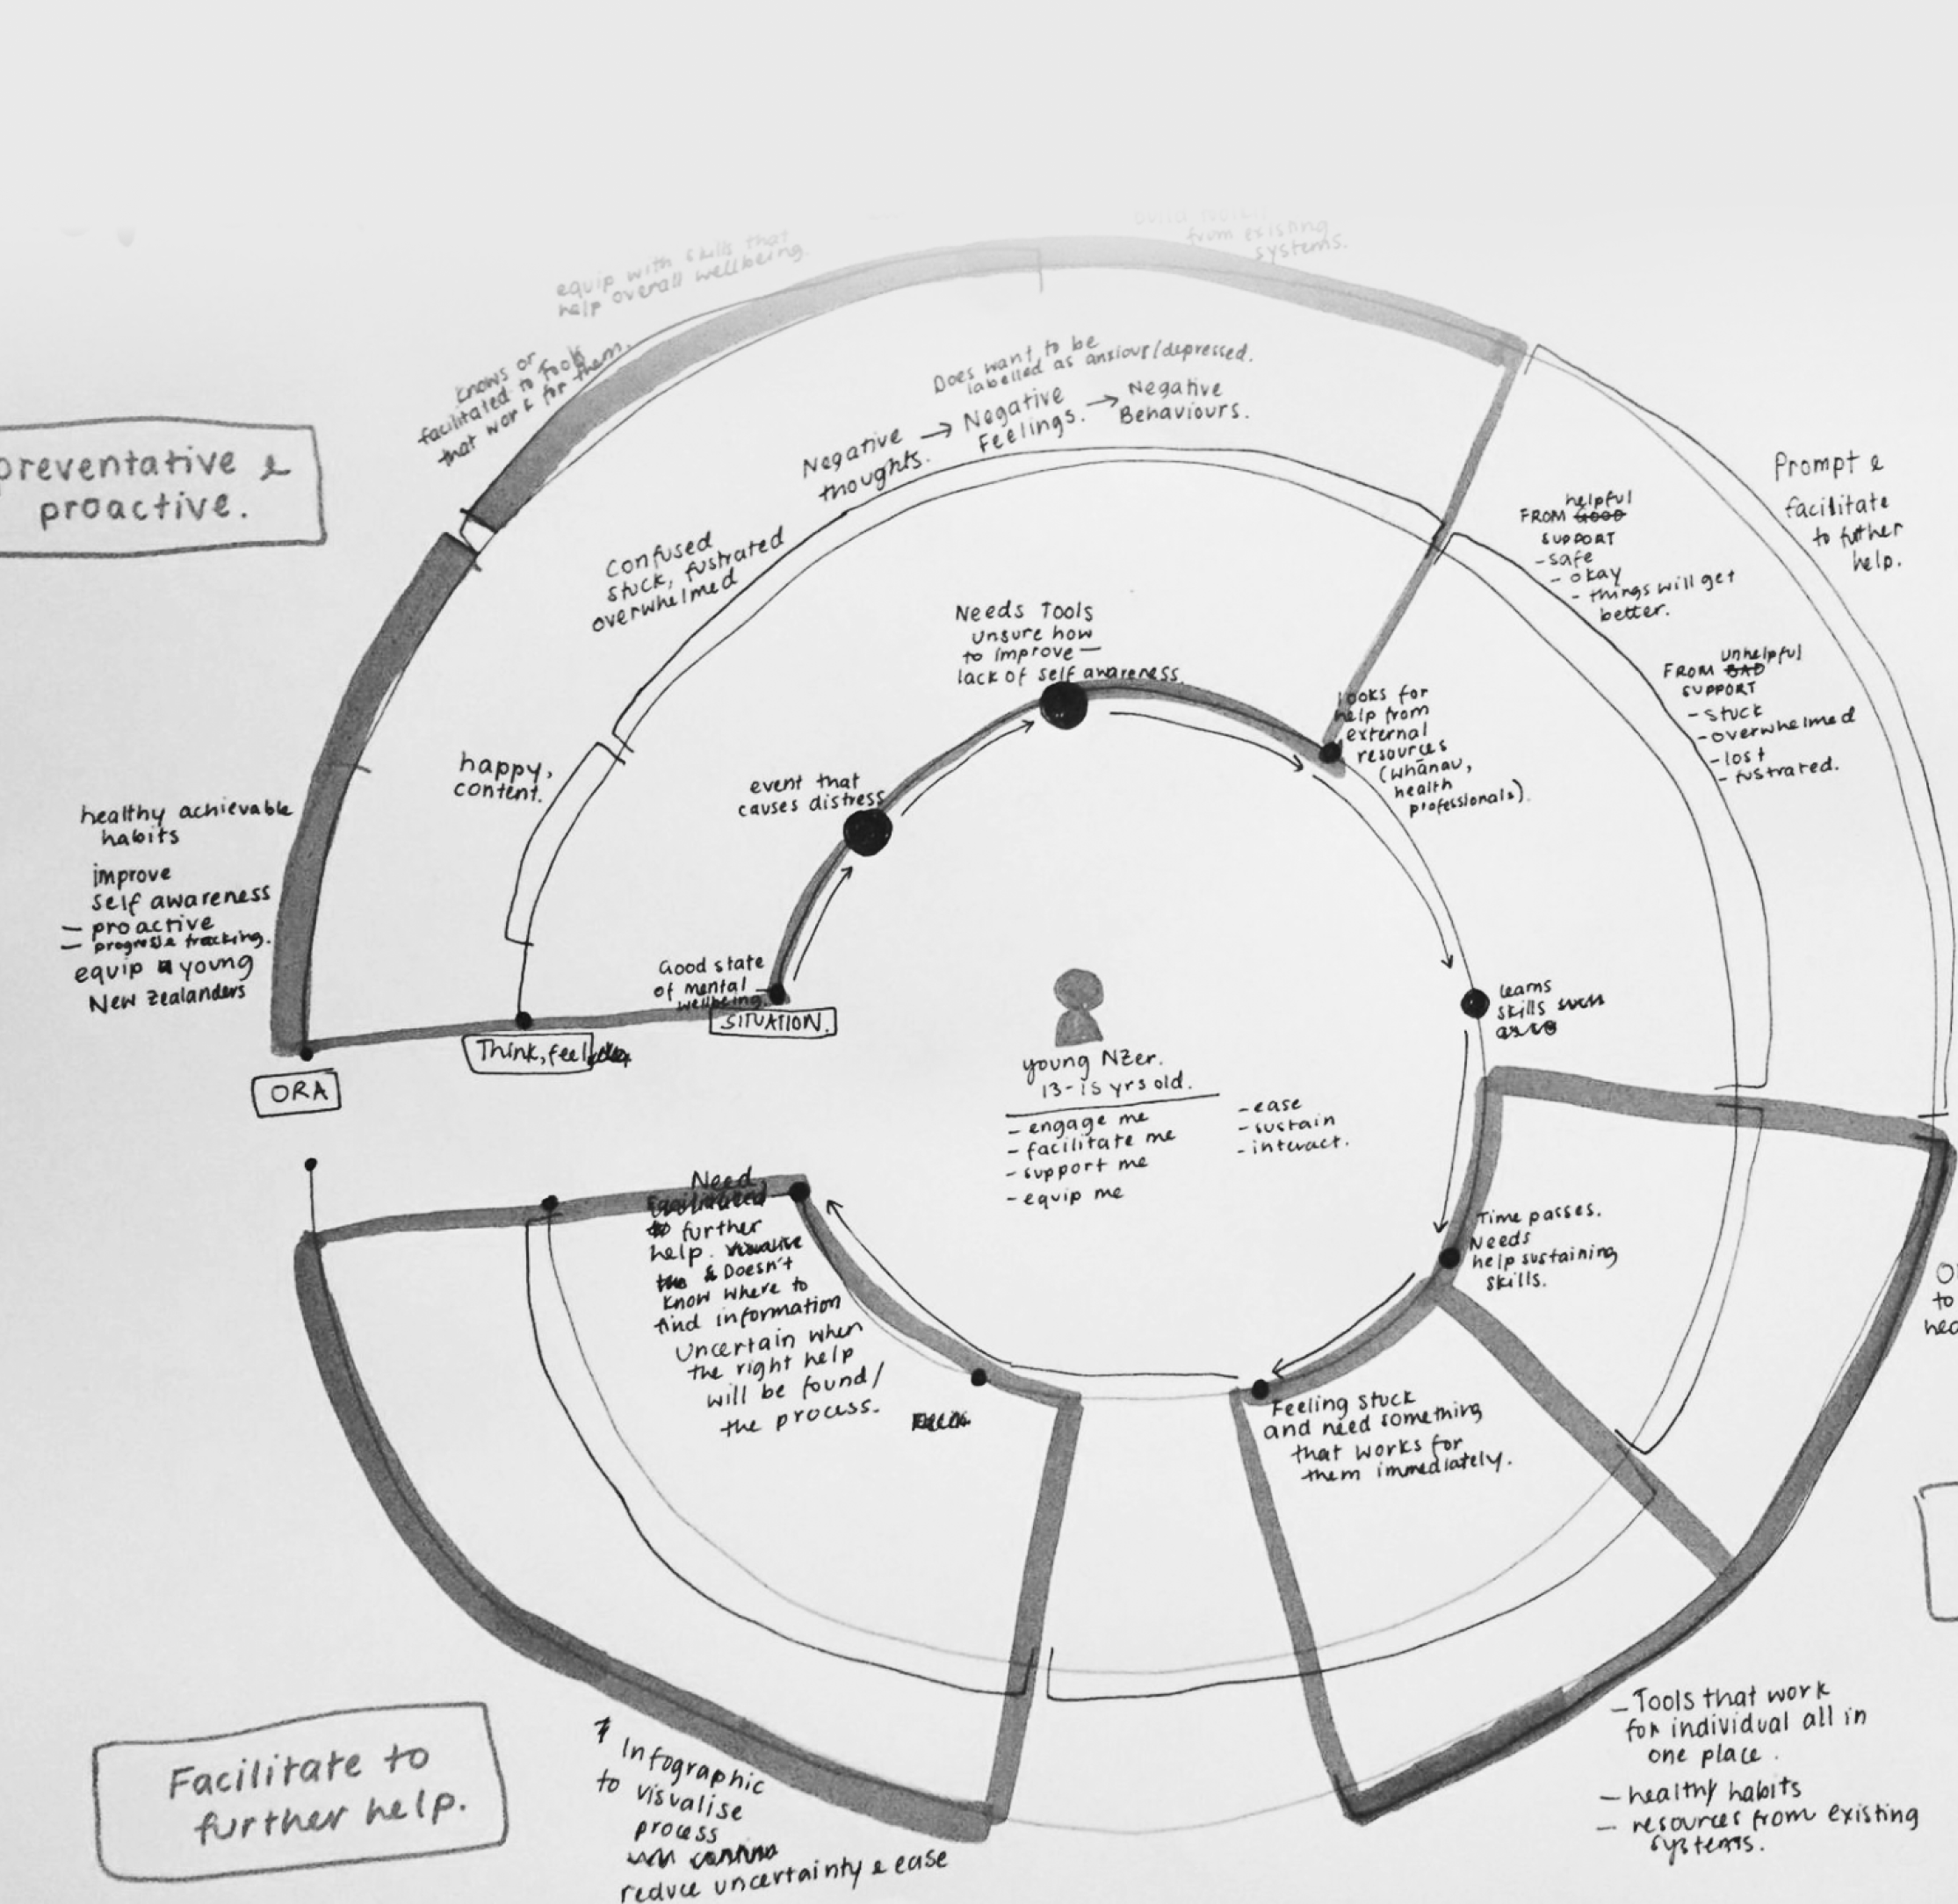 from existing
systems.
equip with skills that
help overall wellbeing.
knows or
facilitated to tools
that work for them.
preventative &
proactive.
Does want to be
labelled as anxious/depressed.
Negative
thoughts.
→ Negative
Feelings.
→ Negative
Behaviours.
Confused
stuck, fustrated
overwhelmed
happy,
content.
healthy achievable
habits
improve
self awareness
- proactive
- progress tracking.
equip young
New Zealanders
Prompt &
facilitate
to futher
help.
helpful
FROM GOOD
SUPPORT
- safe
- okay
- things will get
better.
unhelpful
FROM BAD
SUPPORT
- stuck
- overwhelmed
- lost
- fustrated.
Needs Tools
unsure how
to improve -
lack of self awareness.
event that
causes distress
Good state
of mental
wellbeing.
SITUATION.
Think, feel
ORA
looks for
help from
external
resources
(whānau,
health
professionals).
learns
skills such
young NZer.
13-15 yrs old.
- engage me
- facilitate me
- support me
- equip me
- ease
- sustain
- interact.
Time passes.
Needs
help sustaining
skills.
Feeling stuck
and need something
that works for
them immediately.
Need
Facilitated
to further
help. visualise
the & Doesn't
know where to
find information
Uncertain when
the right help
will be found/
the process.
to
Facilitate to
further help.
Infographic
to visualise
process
reduce uncertainty & ease
- Tools that work
for individual all in
one place.
- healthy habits
- resources from existing
systems.